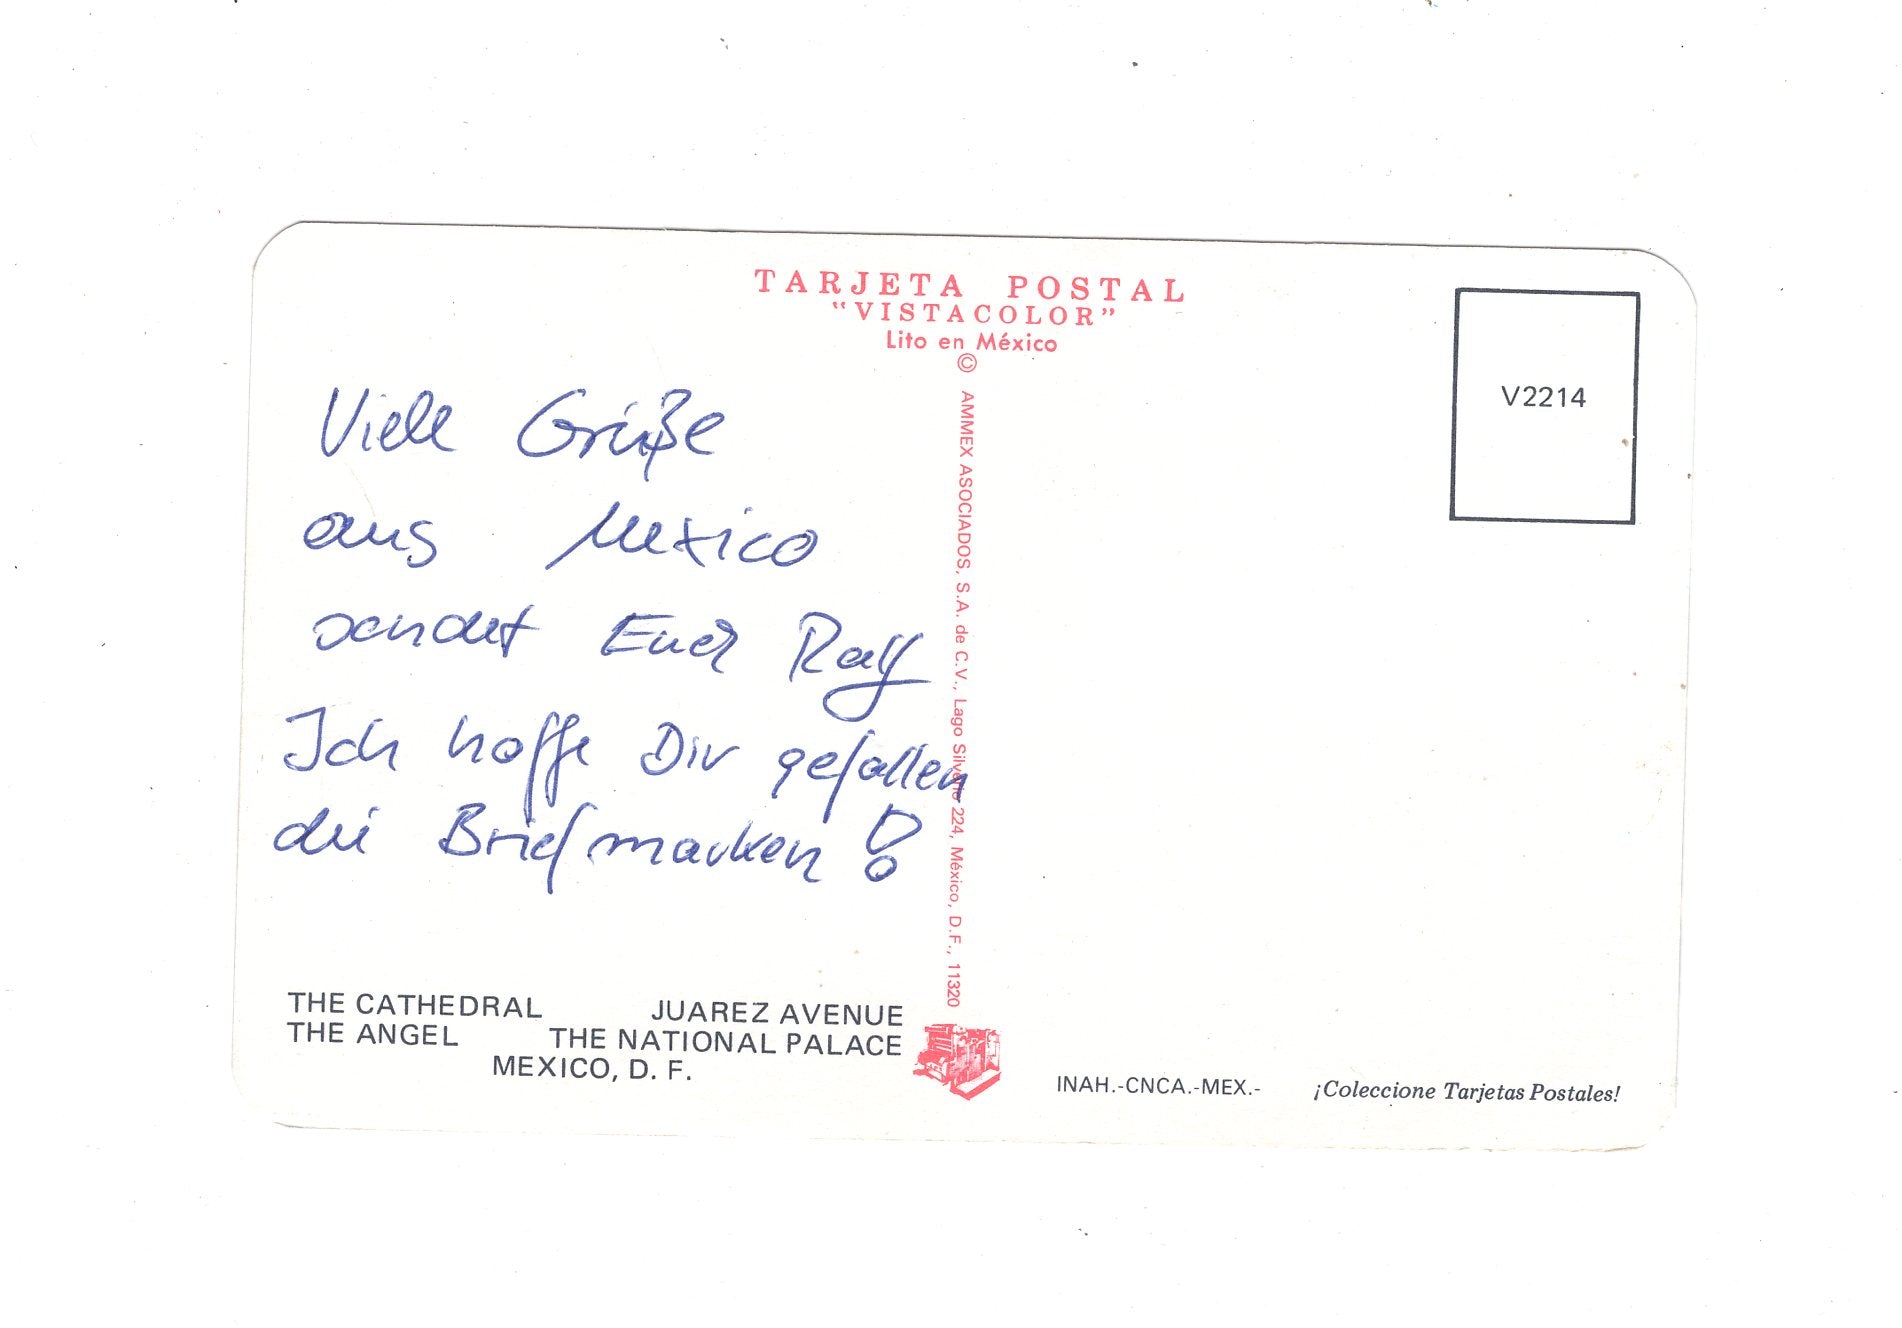 TARJETA POSTAL
"VISTACOLOR"
Lito en México
©
AMMEX ASOCIADOS, S.A. de C.V., Lago Silverio 224, México, D.F., 11320
V2214
Viele Grüße
aus Mexico
sendet Euch Ralf
Ich hoffe Dir gefallen
die Briefmarken!
THE CATHEDRAL JUAREZ AVENUE
THE ANGEL THE NATIONAL PALACE
MEXICO, D. F.
INAH.-CNCA.-MEX.- ¡Coleccione Tarjetas Postales!